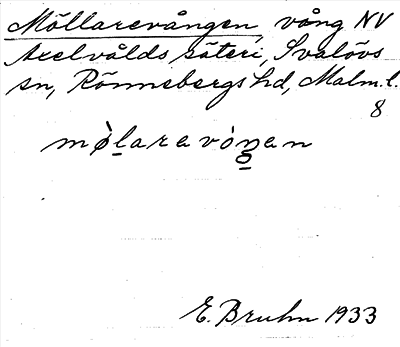 Möllarevången, vång NV
Axelvålds säteri, Svalövs
sn, Rönnebergs hd, Malm. l.
8
mø̀laravóŋan
E. Bruhn 1933